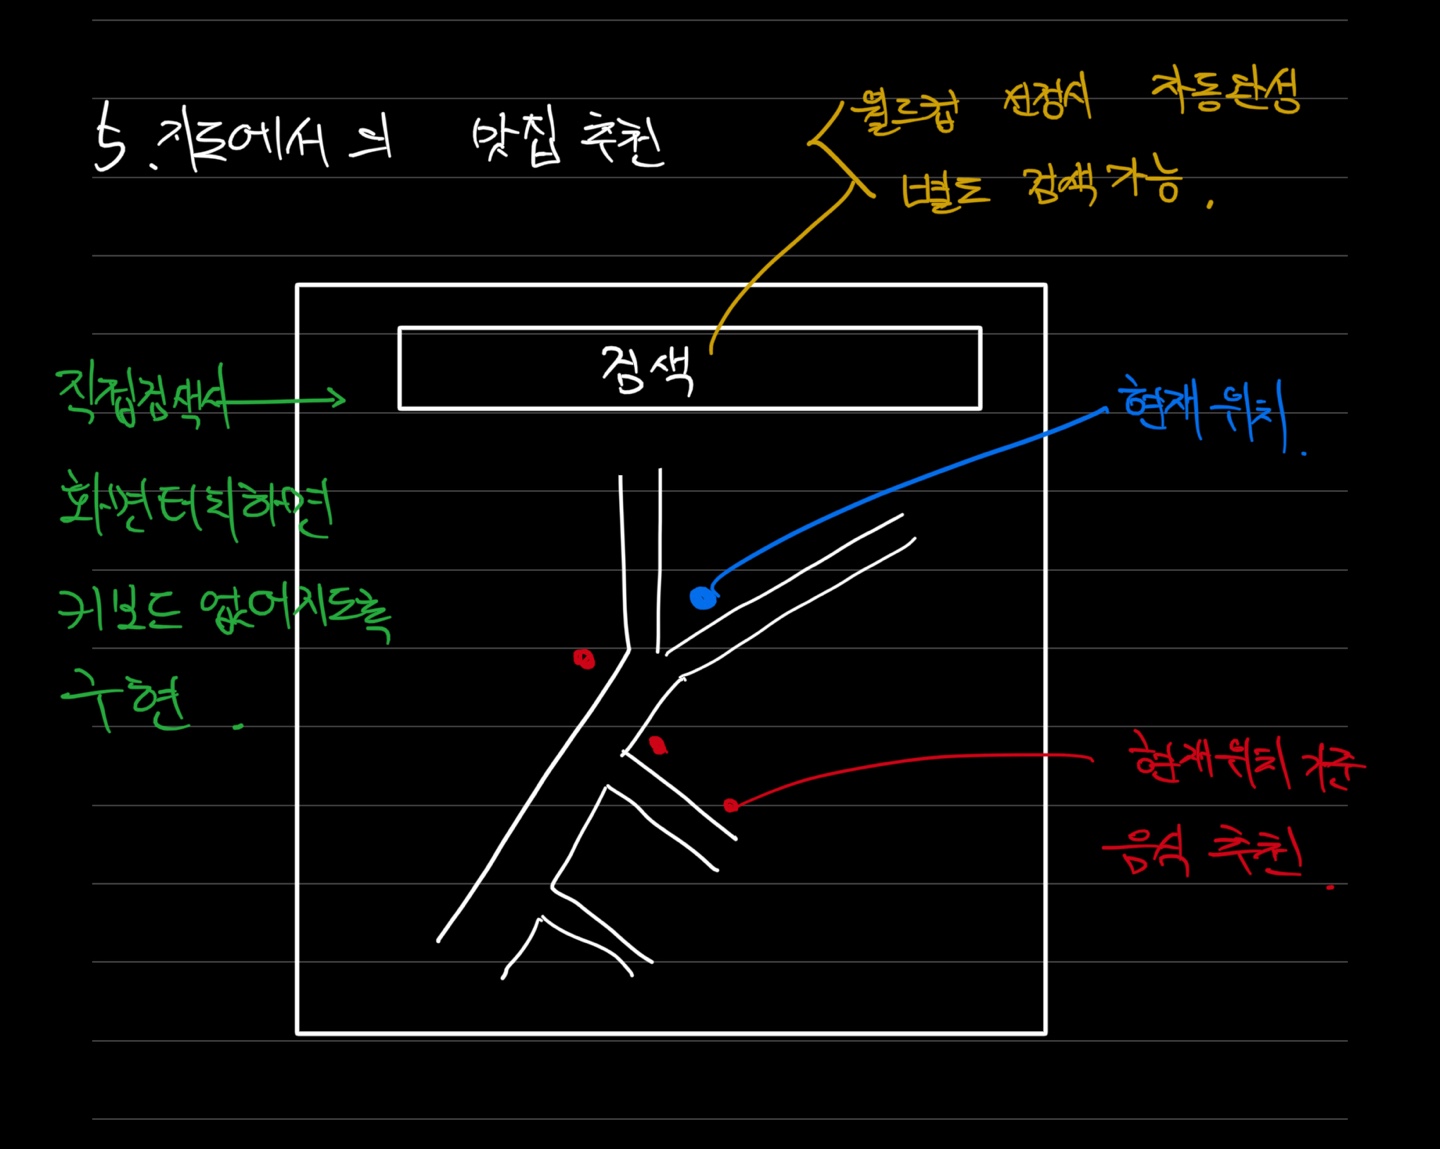 5. 지도에서의 맛집 추천
월드컵 선정시 자동완성
별도 검색 가능.
검색
직접검색시
화면터치하면
키보드 없어지도록
구현.
현재 위치.
현재위치 기준
음식 추천.